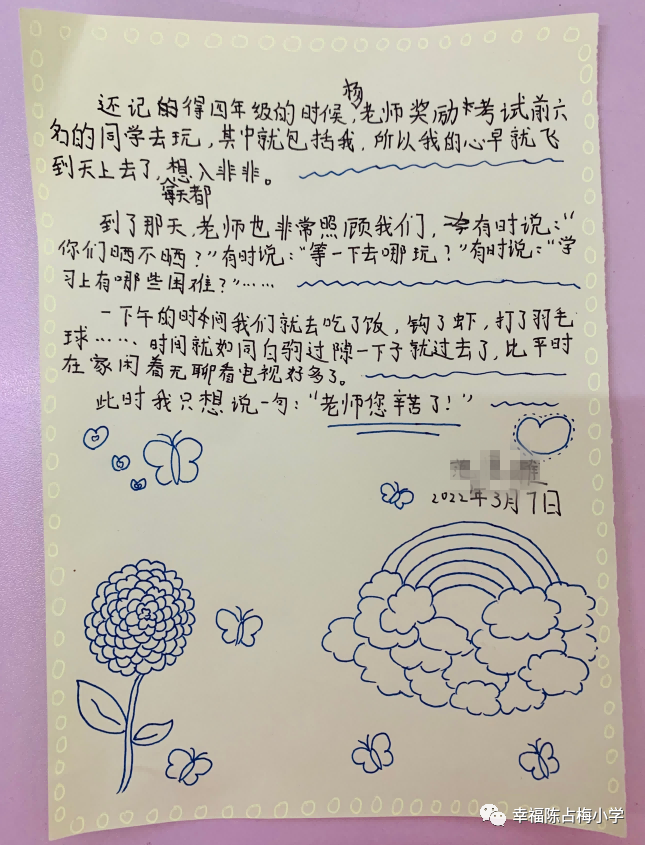 还记的得四年级的时候,杨老师奖励考试前六
名的同学去玩,其中就包括我,所以我的心早就飞
到天上去了,每天都想入非非。
到了那天,老师也非常照顾我们,有时说:“
你们晒不晒?”有时说:“等一下去哪玩?”有时说:“学
习上有哪些困难?”……
一下午的时间我们就去吃了饭,钩了虾,打了羽毛
球……时间就如同白驹过隙一下子就过去了,比平时
在家闲着无聊看电视好多了。
此时我只想说一句:“老师您辛苦了!”
2022年3月7日
幸福陈占梅小学